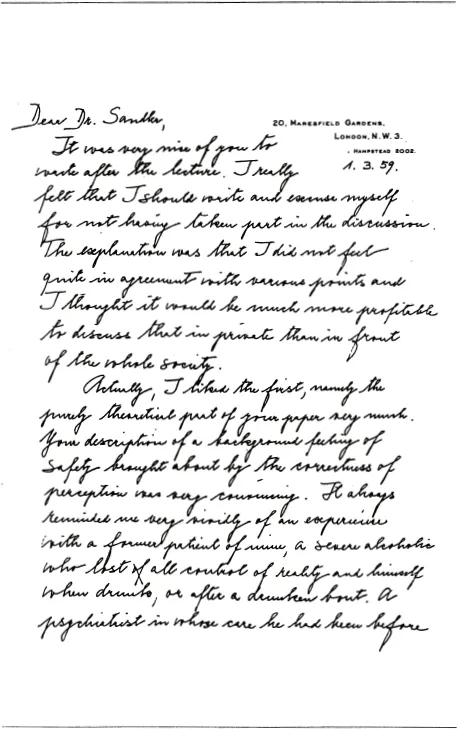 Dear Dr. Sandler,
20, Maresfield Gardens,
London, N.W. 3.
Hampstead 2002.
1. 3. 59.
It was very nice of you to
write after the lecture. I really
felt that I should write and excuse myself
for not having taken part in the discussion.
The explanation was that I did not feel
quite in agreement with various points and
I thought it would be much more profitable
to discuss that in private than in front
of the whole Society.
Actually, I liked the first, namely the
purely theoretical part of your paper very much.
Your description of a background feeling of
safety brought about by the correctness of
perception was very convincing. It always
reminded me very vividly of an experience
with a former patient of mine, a severe alcoholic
who lost all control of reality and himself
when drunk, or after a drunken bout. A
psychiatrist in whose care he had been before